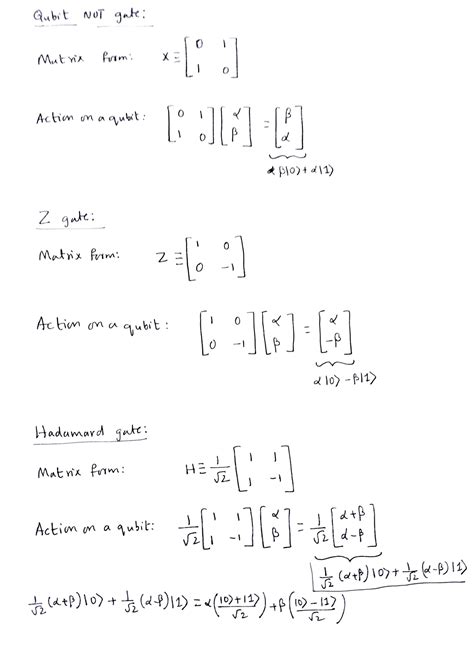 Qubit NOT gate:
Mutrix form: X ≡ [0 1; 1 0]
Action on a qubit: [0 1; 1 0] [α; β] = [β; α]
β|0⟩ + α|1⟩
Z gate:
Matrix form: Z ≡ [1 0; 0 -1]
Action on a qubit: [1 0; 0 -1] [α; β] = [α; -β]
α|0⟩ - β|1⟩
Hadamard gate:
Matrix form: H ≡ 1/√2 [1 1; 1 -1]
Action on a qubit: 1/√2 [1 1; 1 -1] [α; β] = 1/√2 [α+β; α-β]
1/√2 (α+β)|0⟩ + 1/√2 (α-β)|1⟩
1/√2 (α+β)|0⟩ + 1/√2 (α-β)|1⟩ = α(|0⟩+|1⟩/√2) + β(|0⟩-|1⟩/√2)